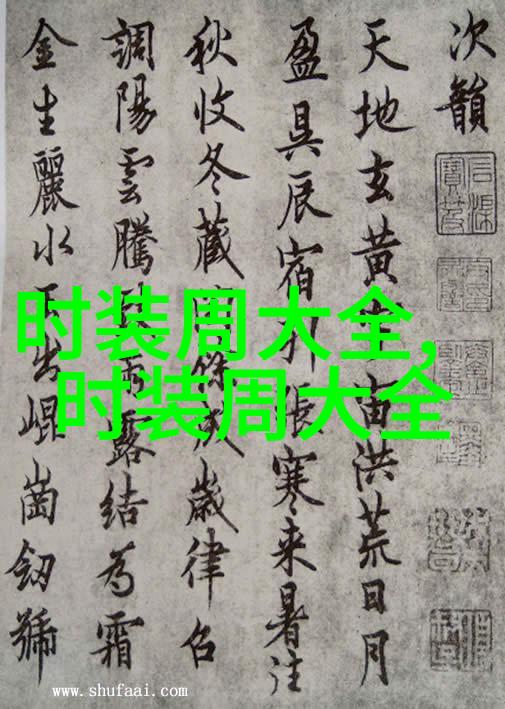 次韻
天地玄黄宙洪荒日月
盈昃辰宿列張寒来暑往
秋收冬藏閏餘成歲律召
調陽雲騰致雨露結為霜
金生麗水玉出崐崗劒號
时装周大全,
时装周大全
www.shufaai.com